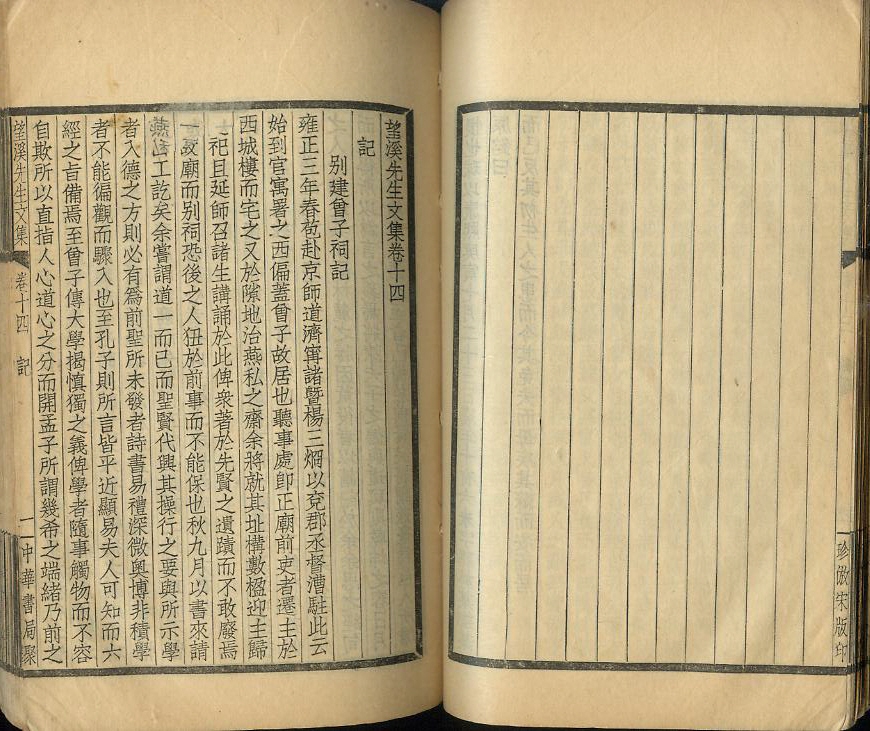 珍倣宋版印
望溪先生文集卷十四
記
別建曾子祠記
雍正三年春苞赴京師道濟寗諸曁楊三烱以兗郡丞督漕駐此云
始到官寓署之西偏蓋曾子故居也聽事處卽正廟前吏者遷主於
西城樓而宅之又於隙地治燕私之齋余將就其址構數楹迎主歸
祀且延師召諸生講誦於此俾衆著於先賢之遺蹟而不敢廢焉
廟而別祠恐後之人狃於前事而不能保也秋九月以書來請
工訖矣余嘗謂道一而已而聖賢代興其操行之要與所示學
者入德之方則必有爲前聖所未發者詩書易禮深微奧博非積學
者不能徧觀而驟入也至孔子則所言皆平近顯易夫人可知而六
經之旨備焉至曾子傳大學揭愼獨之義俾學者隨事觸物而不容
自欺所以直指人心道心之分而開孟子所謂幾希之端緖乃前之
望溪先生文集 卷十四 記 一 中華書局聚